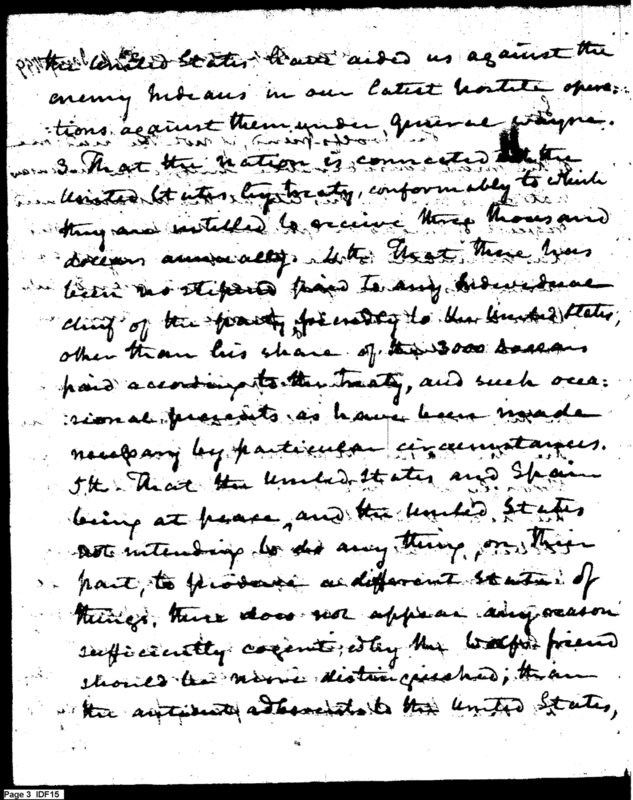 the United States have aided us against the
enemy Indians in our latest hostile opera=
=tions against them under, General Wayne.
3. That the nation is connected the
United States by treaty, conformably to which
they are entitled to receive three thousand
dollars annually. 4th. That there has
been no stipend paid to any Individual
chief of the party, friendly to the United States,
other than his share of the 3000 dollars
paid according to the treaty, and such occa=
=sional presents as have been made
necessary by particular circumstances.
5th. That the United States and Spain
being at peace, and the United States
not intending to do any thing, on their
part, to produce a different state of
things, there does not appear any reason
sufficiently cogent, why the friend
should be more distinguished; than
the adherents to the United States,
Page 3 IDF15